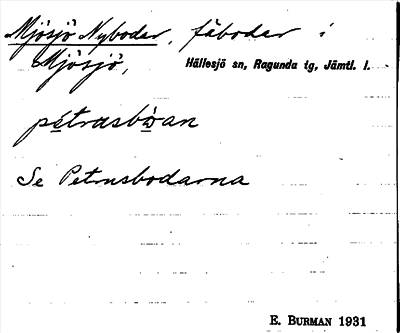 Mjösjö Nybodar, fäbodar i
Mjösjö, Hällesjö sn, Ragunda tg, Jämtl. l.
pétrasbòan
Se Petrusbodarna
E. BURMAN 1931